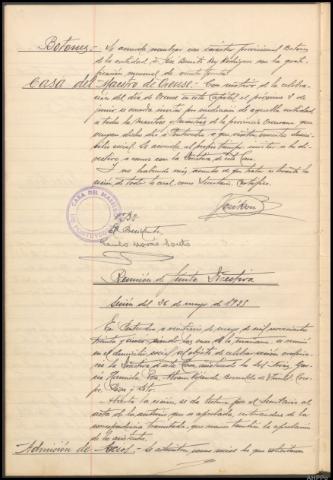 Botones.- Se acuerda nombrar con caracter provisional Botones
de la entidad a José Benito Rey Rodríguez con la grati-
ficación mensual de veinte pesetas.
Casa del Maestro de Orense.- Con motivo de la celebra-
ción del día de Orense en esta Capital el próximo 2 de
junio se acuerda invitar por mediación de aquella entidad
a todos los Maestros y Maestras de la provincia Orensana que
vengan dicho día a Pontevedra a que visiten nuestro domi-
cilio social. Se acuerda al propio tiempo invitar a la di-
rectiva a comer con la Directiva de esta Casa.
Y no habiendo más asuntos de que tratar se levantó la
sesión de todo lo cual, como Secretario, Certifico.
CASA DEL MAESTRO
PONTEVEDRA
Vº Bº
El Presidente
Reunión de Junta Directiva
Sesión del 26 de mayo de 1935
En Pontevedra a veintiseis de mayo de mil novecientos
treinta y cinco siendo las once de la mañana, se reunió
en el domicilio social al objeto de celebrar sesión
la Directiva de esta Casa, asistiendo los Sres.
Abierta la sesión se da lectura por el Secretario al
acta de la anterior que es aprobada, enterándose de la
correspondencia tramitada, que merece también la aprobación
de los asistentes.
Admisión de socios.- Se admiten como socios los que
AHPPo